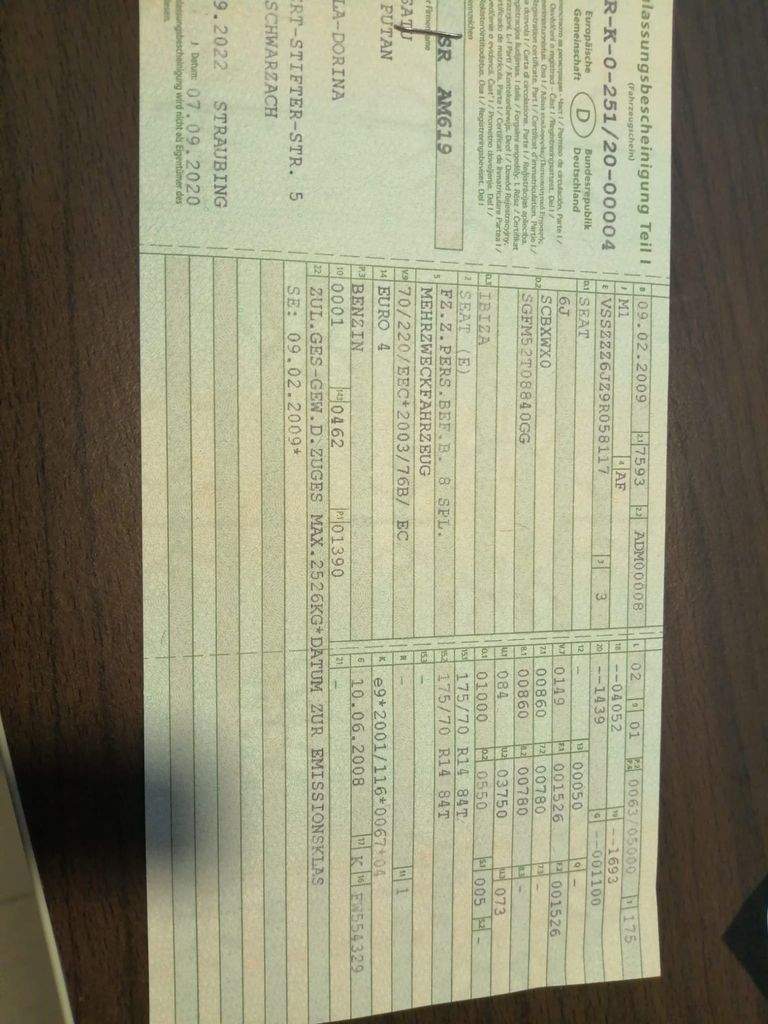 lassungsbescheinigung Teil I
(Fahrzeugschein)
R-K-0-251/20-00004
Europäische Gemeinschaft
D
Bundesrepublik Deutschland
SR AM619
PUTAN
LA-DORINA
RT-STIFTER-STR. 5
SCHWARZACH
9.2022 STRAUBING
Datum: 07.09.2020
B 09.02.2009 2.1 7593 2.2 ADM00008
J M1 4 AF
E VSSZZZ6JZ9R058117 3 3
D.1 SEAT
6J
D.2 SCBXWX0
SGFM52T08840GG
D.3 IBIZA
2 SEAT (E)
5 FZ.Z.PERS.BEF.B. 8 SPL.
MEHRZWECKFAHRZEUG
V.9 70/220/EEC*2003/76B/ EC
14 EURO 4
P.3 BENZIN
10 0001 14.1 0462 P.1 01390
22 ZUL.GES-GEW.D.ZUGES MAX.2526KG*DATUM ZUR EMISSIONSKLAS
SE: 09.02.2009*
L 02 9 01 P.2 P.4 0063/05000 T 175
18 --04052 19 --1693
20 --1439 G --001100
12 - 13 00050 Q -
V.7 0149 F.1 001526 F.2 001526
7.1 00860 7.2 00780 7.3 -
8.1 00860 8.2 00780 8.3 -
U.1 084 U.2 03750 U.3 073
O.1 01000 O.2 0550 S.1 005 S.2 -
15.1 175/70 R14 84T
15.2 175/70 R14 84T
15.3 -
R - 11 1
K e9*2001/116*0067*04
6 10.06.2008 17 K 16 FW554329
21 -